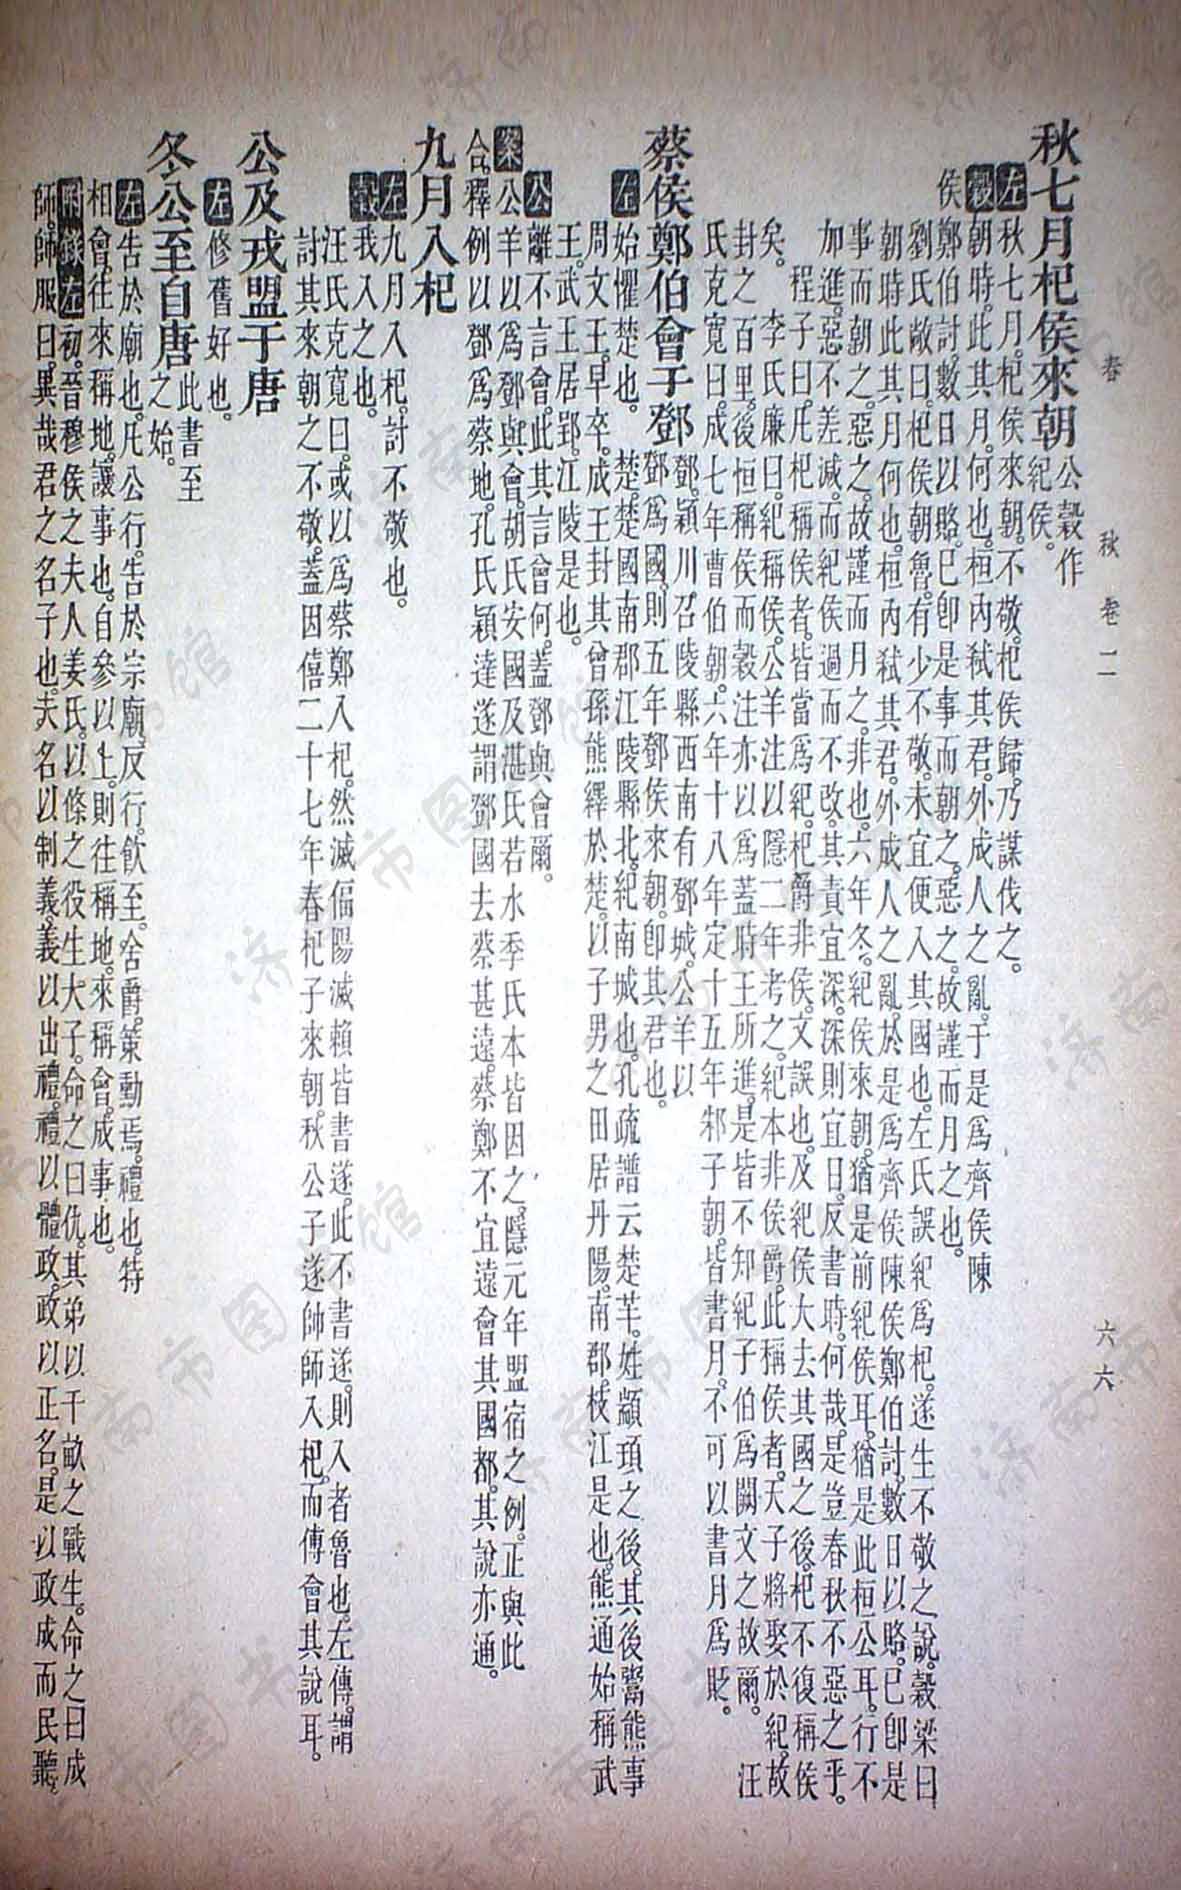 春　秋　卷二　六六
秋七月杞侯來朝公穀作紀侯。
左秋七月。杞侯來朝。不敬。杞侯歸。乃謀伐之。
穀朝時。此其月。何也。桓內弒其君。外成人之亂。于是爲齊侯陳
侯鄭伯討。數日以賂。已卽是事而朝之。惡之。故謹而月之也。
劉氏敞曰。杞侯朝魯。有少不敬。未宜便入其國也。左氏誤紀爲杞。遂生不敬之說。穀梁曰
朝時此其月何也。桓內弒其君。外成人之亂。於是爲齊侯陳侯鄭伯討。數日以賂。已卽是
事而朝之。惡之。故謹而月之。非也。六年冬。紀侯來朝。猶是前紀侯耳。猶是此桓公耳。行不
加進。惡不差減。而紀侯過而不改。其責宜深。深則宜日。反書時。何哉。是豈春秋不惡之乎。
程子曰。凡杞稱侯者。皆當爲紀。杞爵非侯。文誤也。及紀侯大去其國之後。杞不復稱侯
矣。李氏廉曰。紀稱侯。公羊注以隱二年考之。紀本非侯爵。此稱侯者。天子將娶於紀。故
封之百里。後恒稱侯。而穀注亦以爲蓋時王所進。是皆不知紀子伯爲闕文之故爾。汪
氏克寬曰。成七年曹伯朝。六年十八年定十五年邾子朝。皆書月。不可以書月爲貶。
蔡侯鄭伯會于鄧鄧。潁川。召陵縣西南有鄧城。公羊以
鄧爲國。則五年鄧侯來朝。卽其君也。
左始懼楚也。楚。楚國。南郡江陵縣北。紀南城也。孔疏譜云。楚。芈姓。顓頊之後。其後鬻熊事
周文王。早卒。成王封其曾孫熊繹於楚。以子男之田居丹陽。南郡。枝江是也。熊通始稱武
王。武王居郢。江陵是也。
公離不言會。此其言會何。蓋鄧與會爾。
案公羊以爲鄧與會。胡氏安國及湛氏若水季氏本皆因之。隱元年盟宿之例。正與此
合。釋例以鄧爲蔡地。孔氏穎達遂謂鄧國去蔡甚遠。蔡鄭不宜遠會其國都。其說亦通。
九月入杞
左九月入杞。討不敬也。
穀我入之也。
汪氏克寬曰。或以爲蔡鄭入杞。然滅偪陽滅賴皆書遂。此不書遂。則入者魯也。左傳。謂
討其來朝之不敬。蓋因僖二十七年春杞子來朝。秋公子遂帥師入杞。而傅會其說耳。
公及戎盟于唐
左修舊好也。
冬公至自唐此書至之始。
左告於廟也。凡公行。告於宗廟。反行。飮至。舍爵。策勳焉。禮也。特
相會。往來稱地。讓事也。自參以上。則往稱地。來稱會。成事也。
附錄左初。晉穆侯之夫人姜氏。以條之役生大子。命之曰仇。其弟以千畝之戰生。命之曰成
師。師服曰。異哉君之名子也。夫名以制義。義以出禮。禮以體政。政以正名。是以政成而民聽。